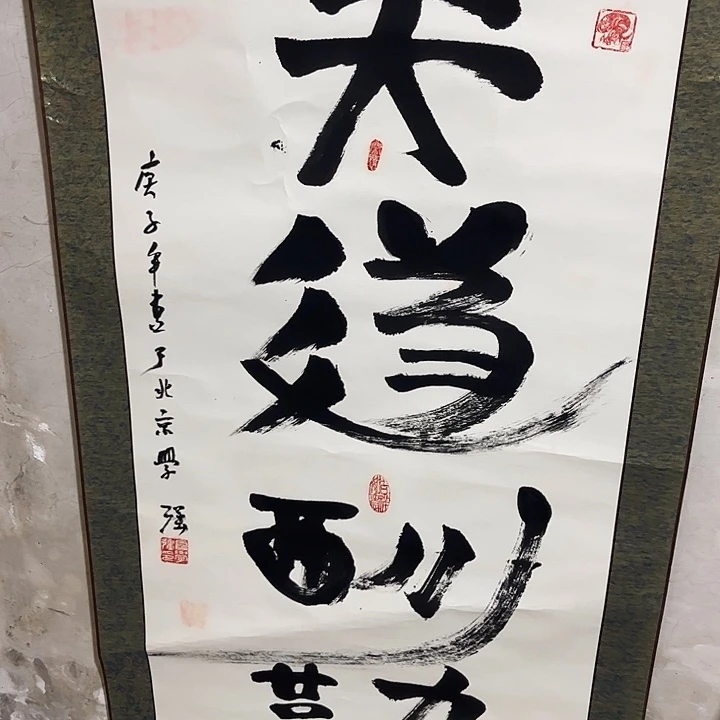 天道酬勤
庚子年書于北京學强